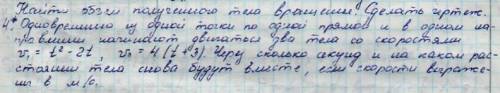 Найти объем полученного тела вращения. Сделать чертеж.
4. Одновременно из одной точки по одной прямой и в одном на-
правлении начинают двигаться два тела со скоростями
v₁ = t² - 2t, v₂ = 4(t + 3). Через сколько секунд и на каком рас-
стоянии тела снова будут вместе, если скорости выраже-
ны в м/с.